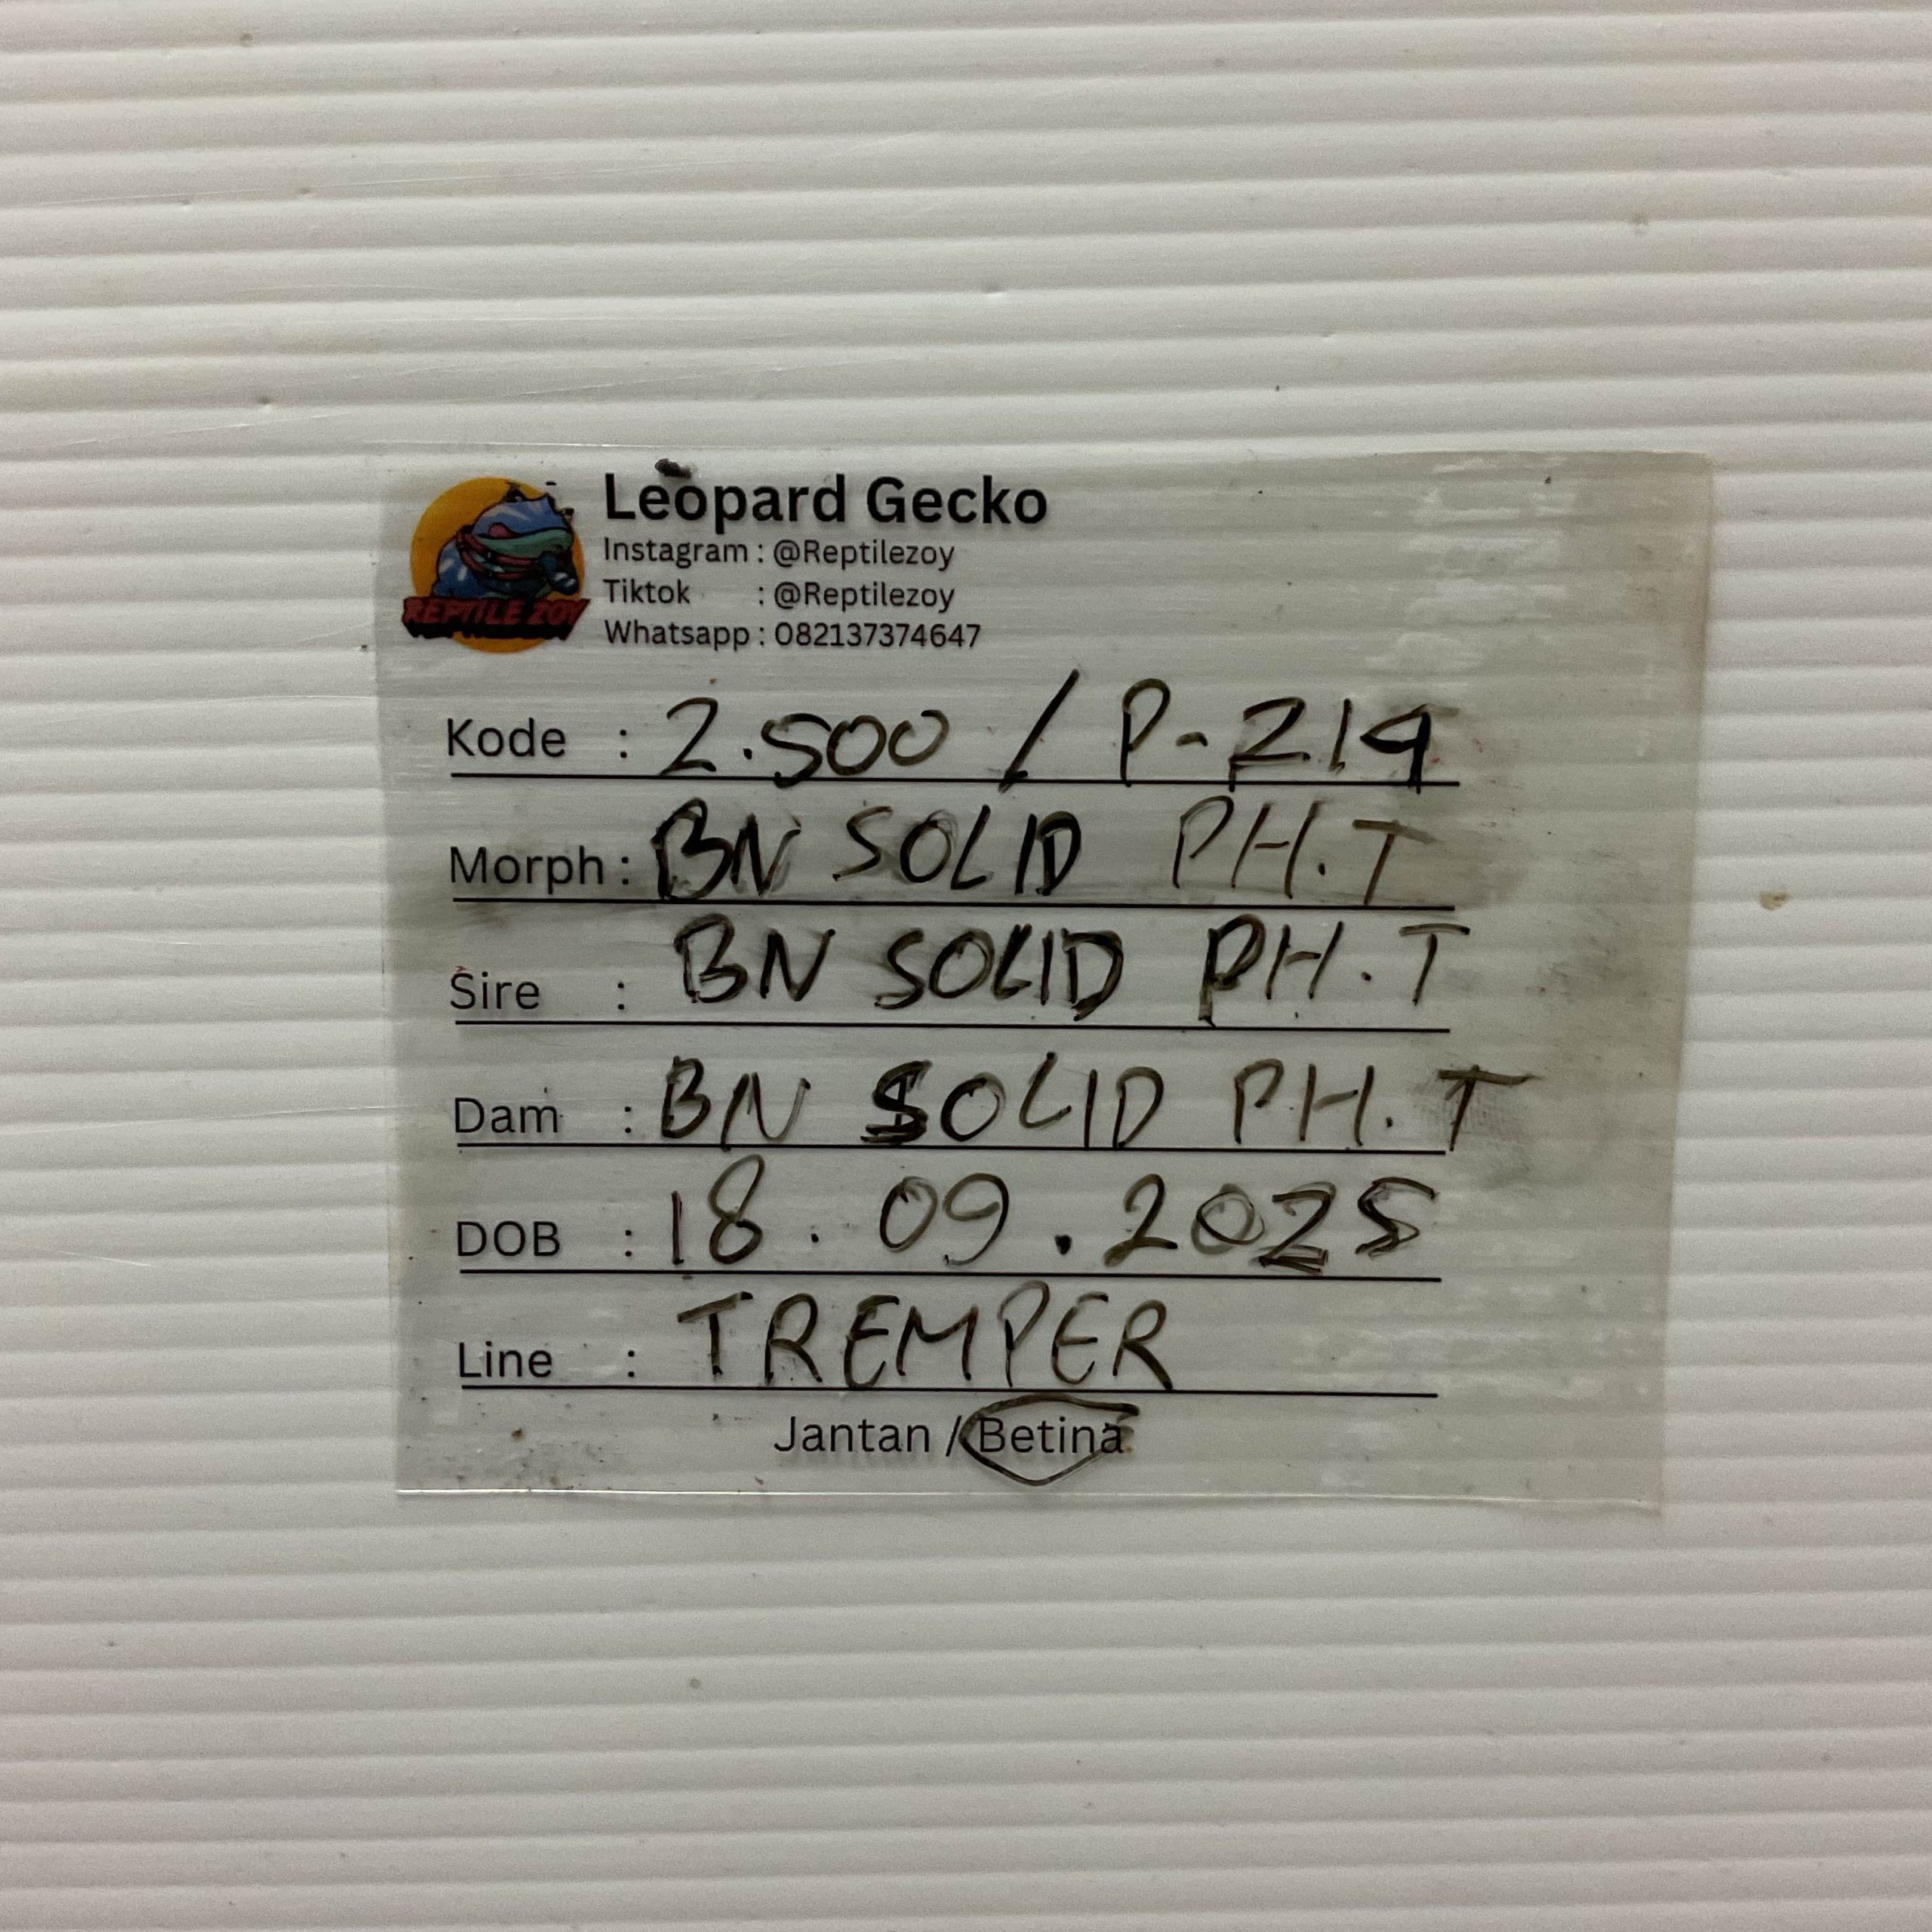 REPTILE ZOY
Leopard Gecko
Instagram : @Reptilezoy
Tiktok : @Reptilezoy
Whatsapp : 082137374647
Kode : 2.500 / P-219
Morph : BN SOLID PH.T
Sire : BN SOLID PH.T
Dam : BN SOLID PH.T
DOB : 18.09.2025
Line : TREMPER
Jantan / Betina